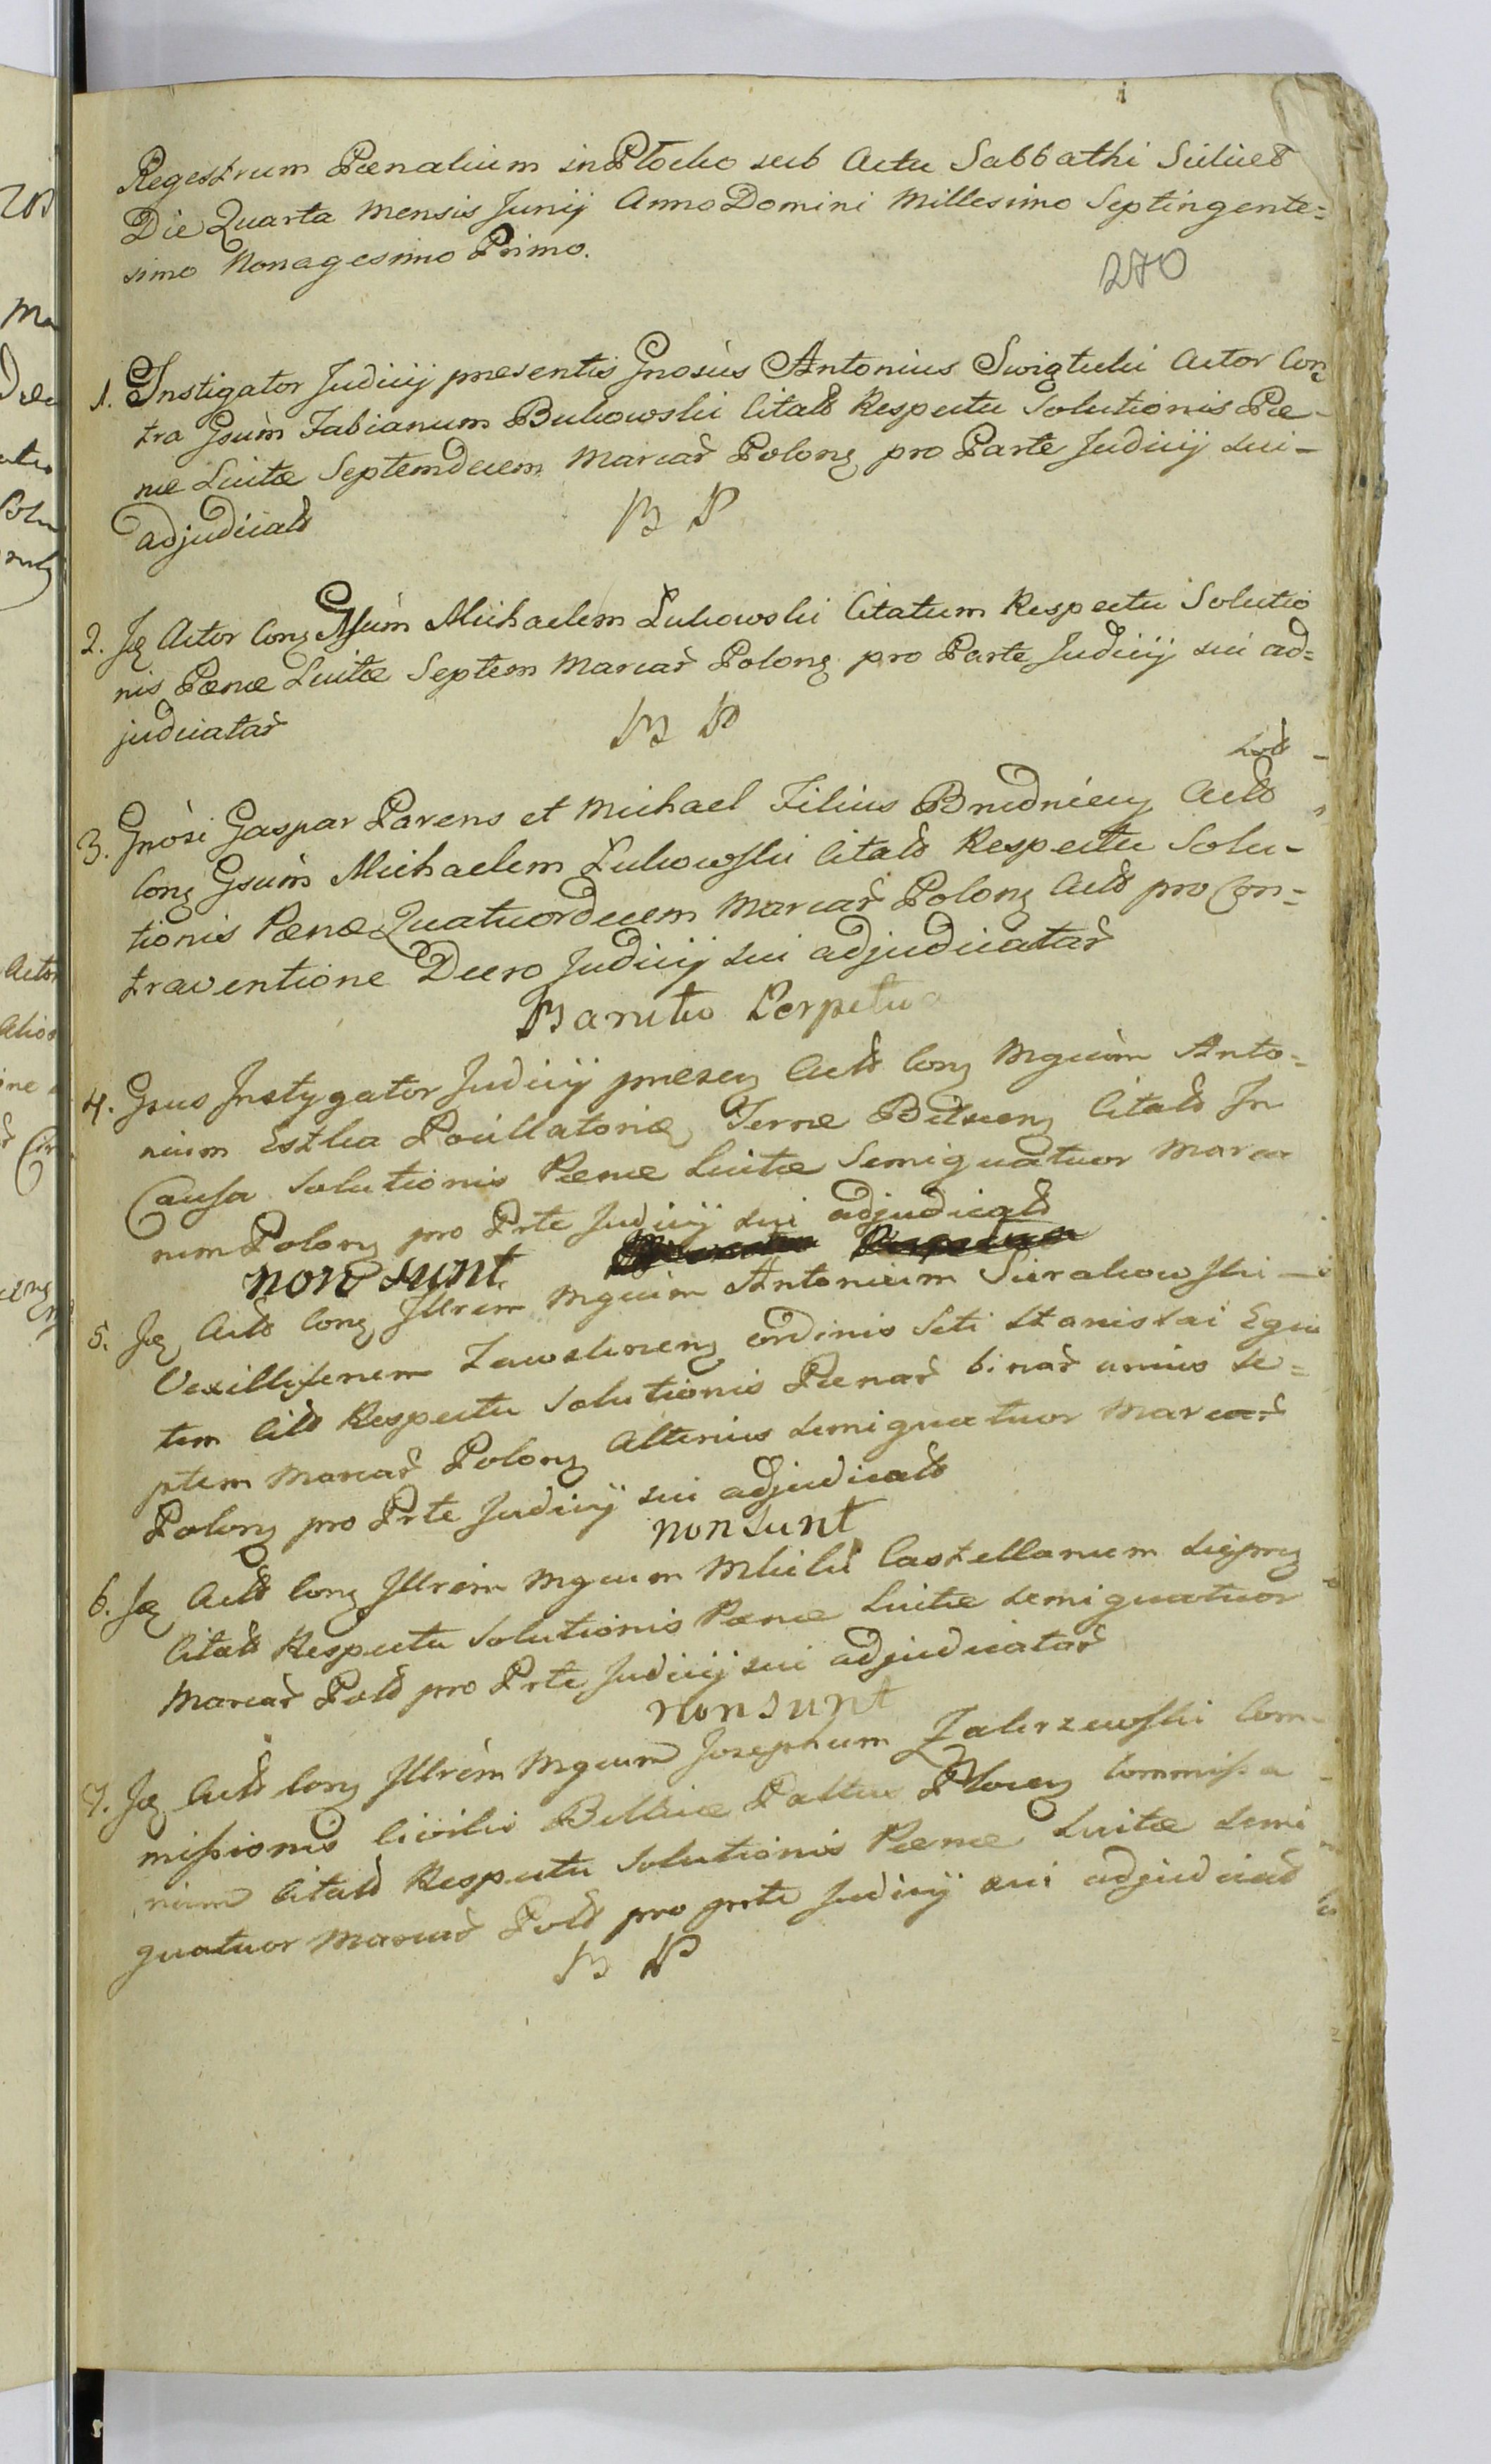 Regestrum Pœnalium in Płocko sub Actu Sabbathi Scilicet
Die Quarta Mensis Junij Anno Domini Millesimo Septingente=
simo Nonagesimo Primo.
270
1. Instigator Judicij præsentis Gnosus Antonius Swigticki Actor Con
tra Gsum Fabianum Bukowski Citat Respectu Solutionis Pœ-
næ Luitæ Septemdecem Marcar Polon pro Parte Judicij sui-
adjudicat
B P
2. Iq Actor Con Gsum Michaelem Łukowski Citatum Respectu Solutio
nis Pœnæ Luitæ Septem Marcar Polon pro Parte Judicij sui ad=
judicatar
B P
3. Gnosi Gaspar Parens et Michael Filius Act
Con Gsum Michaelem Łukowski Citat Respectu Solu-
tionis Pœnæ Quatuordecem Marcar Polon Act pro Con=
traventione Decro Judicij sui adjudicatar
Banitio Perpetua
4. Gsus Instygator Judicij præsen Act Con Mgcum Anto=
nium Estka Pocillatoriæ Terræ Citat In
Causa Solutionis Pœnæ Luitæ Semiquatuor Marca
rum Polon pro Prte Judicij sui adjudicat
non sunt
5. Iq Act Con Illrem Mgcum Antonium Sierakowski -
Vexilliferum Zawskrnen Ordinis Scti Stanislai Equi
tem Cit Respectu Solutionis Pœnar binar unius Se=
ptem Marcar Polon Alterius Semiquatuor Marcar
Polon pro Prte Judicij sui adjudicat
non sunt
6. Iq Act Con Illrem Mgcum Castellanum
Citat Respectu Solutionis Pœnæ Luitæ Semiquatuor
Marcar Pol pro Prte Judicij sui adjudicatar
non sunt
7. Iq Act Con Illrem Mgcum Josephum Zakrzewski Com-
missionis Civilis Bellicæ Pallus Plocen Commissa
rium Citat Respectu Solutionis Pœnæ Luitæ Semi
quatuor Marcar Pol pro prte Judicij sui adjudicat
B P